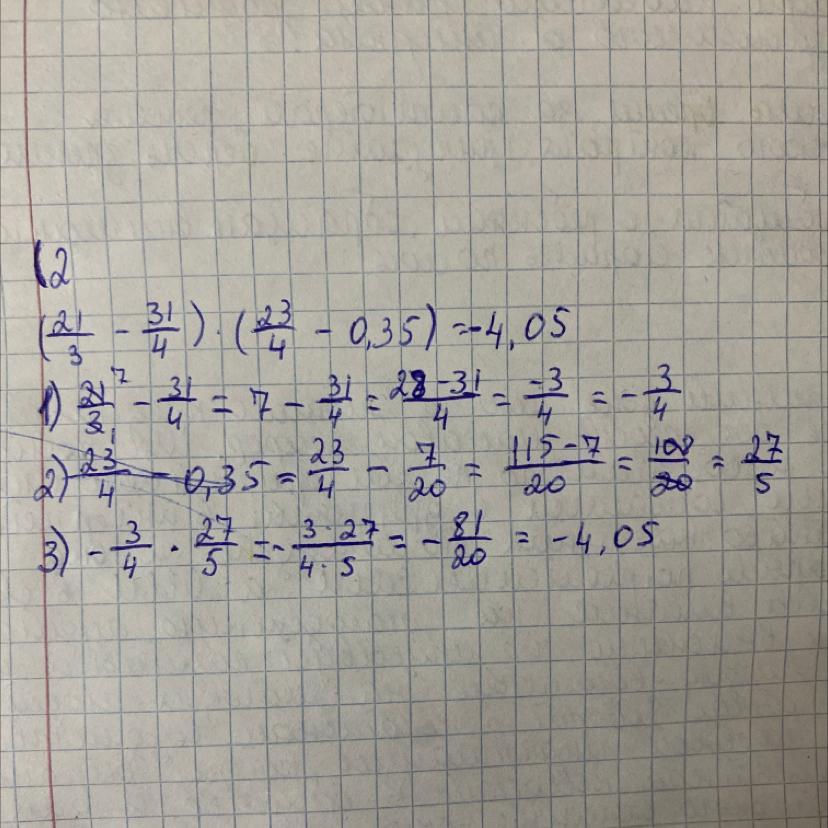 (2
(21/3 - 31/4) · (23/4 - 0,35) = -4,05
1) 21/3 - 31/4 = 7 - 31/4 = 28-31/4 = -3/4 = -3/4
2) 23/4 - 0,35 = 23/4 - 7/20 = 115-7/20 = 108/20 = 27/5
3) -3/4 · 27/5 = -3·27/4·5 = -81/20 = -4,05